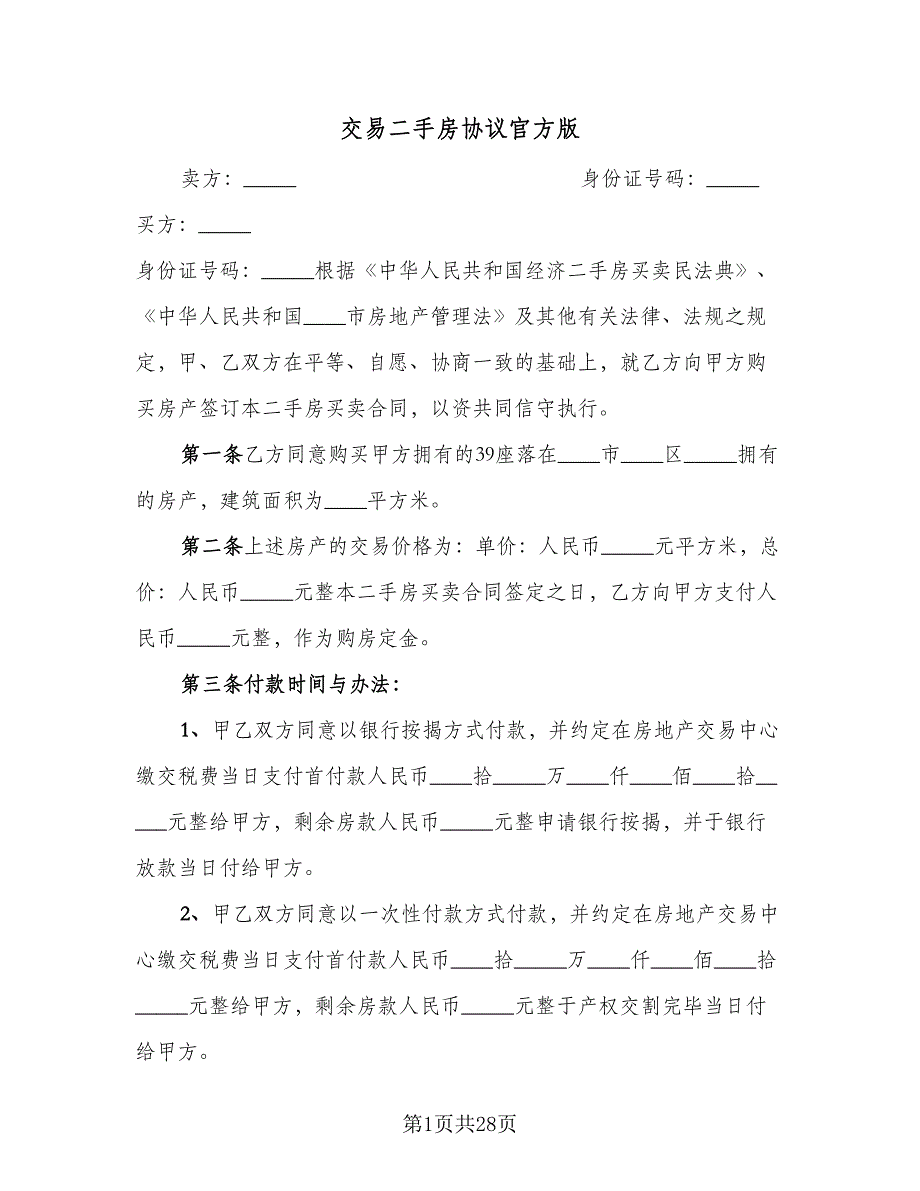 交易二手房协议官方版
卖方：_____ 身份证号码：_____
买方：_____
身份证号码：_____根据《中华人民共和国经济二手房买卖民法典》、
《中华人民共和国____市房地产管理法》及其他有关法律、法规之规
定，甲、乙双方在平等、自愿、协商一致的基础上，就乙方向甲方购
买房产签订本二手房买卖合同，以资共同信守执行。
第一条乙方同意购买甲方拥有的39座落在____市____区_____拥有
的房产，建筑面积为____平方米。
第二条上述房产的交易价格为：单价：人民币_____元平方米，总
价：人民币_____元整本二手房买卖合同签定之日，乙方向甲方支付人
民币_____元整，作为购房定金。
第三条付款时间与办法：
1、甲乙双方同意以银行按揭方式付款，并约定在房地产交易中心
缴交税费当日支付首付款人民币____拾_____万____仟____佰____拾__
___元整给甲方，剩余房款人民币_____元整申请银行按揭，并于银行
放款当日付给甲方。
2、甲乙双方同意以一次性付款方式付款，并约定在房地产交易中
心缴交税费当日支付首付款人民币____拾_____万____仟____佰____拾
_____元整给甲方，剩余房款人民币_____元整于产权交割完毕当日付
给甲方。
第1页共28页